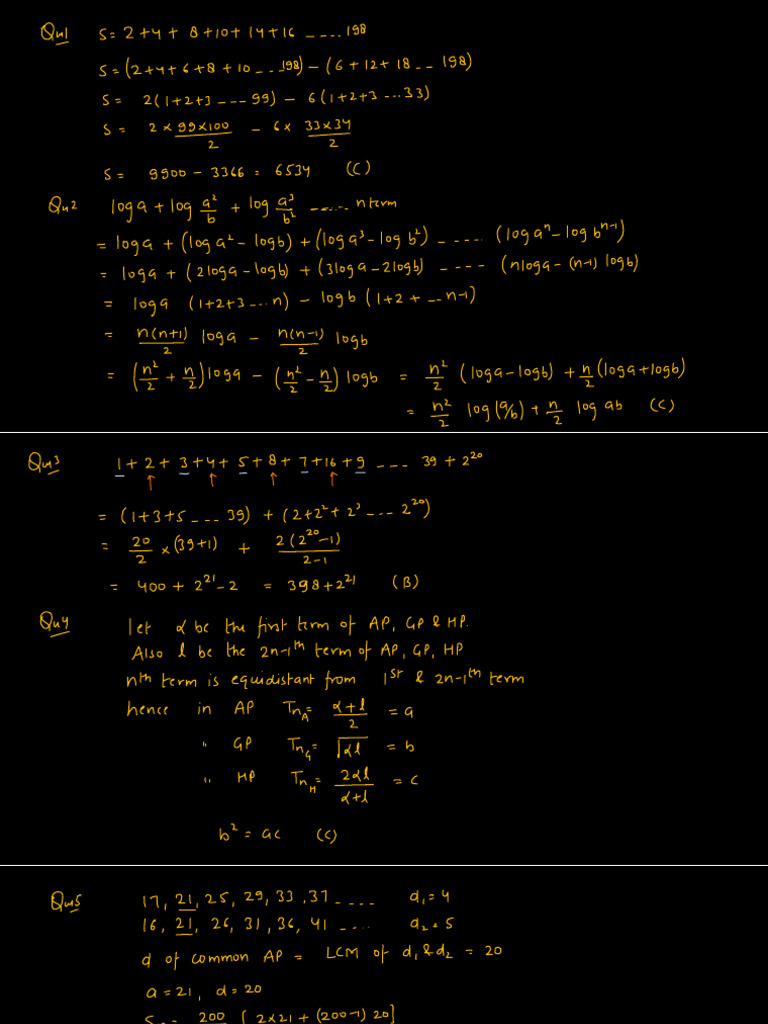 Qu1 S = 2+4+ 8+10+ 14+16 ---- 198
S = (2+4+6+8+10 --- 198) - (6+12+18 -- 198)
S = 2(1+2+3 --- 99) - 6(1+2+3 --- 33)
S = 2 × 99×100/2 - 6 × 33×34/2
S = 9900 - 3366 = 6534 (C)
Qu2 log a + log a²/b + log a³/b² ----- n term
= log a + (log a² - log b) + (log a³ - log b²) ----- (log aⁿ - log bⁿ⁻¹)
= log a + (2 log a - log b) + (3 log a - 2 log b) ---- (n log a - (n-1) log b)
= log a (1+2+3 --- n) - log b (1+2+ --- n-1)
= n(n+1)/2 log a - n(n-1)/2 log b
= (n²/2 + n/2) log a - (n²/2 - n/2) log b = n²/2 (log a - log b) + n/2 (log a + log b)
= n²/2 log (a/b) + n/2 log ab (C)
Qu3 1 + 2 + 3 + 4 + 5 + 8 + 7 + 16 + 9 --- 39 + 2²⁰
= (1+3+5 --- 39) + (2+2²+2³ --- 2²⁰)
= 20/2 × (39+1) + 2(2²⁰-1)/2-1
= 400 + 2²¹ - 2 = 398 + 2²¹ (B)
Qu4 let α be the first term of AP, GP & HP.
Also l be the 2n-1ᵗʰ term of AP, GP, HP
nth term is equidistant from 1ˢᵗ & 2n-1ᵗʰ term
hence in AP TnA = α+l/2 = a
" GP TnG = √αl = b
" HP TnH = 2αl/α+l = c
b² = ac (C)
Qu5 17, 21, 25, 29, 33, 37 ---- d₁ = 4
16, 21, 26, 31, 36, 41 ---- d₂ = 5
d of common AP = LCM of d₁ & d₂ = 20
a = 21, d = 20
200 [ 2×21 + (200-1) 20]